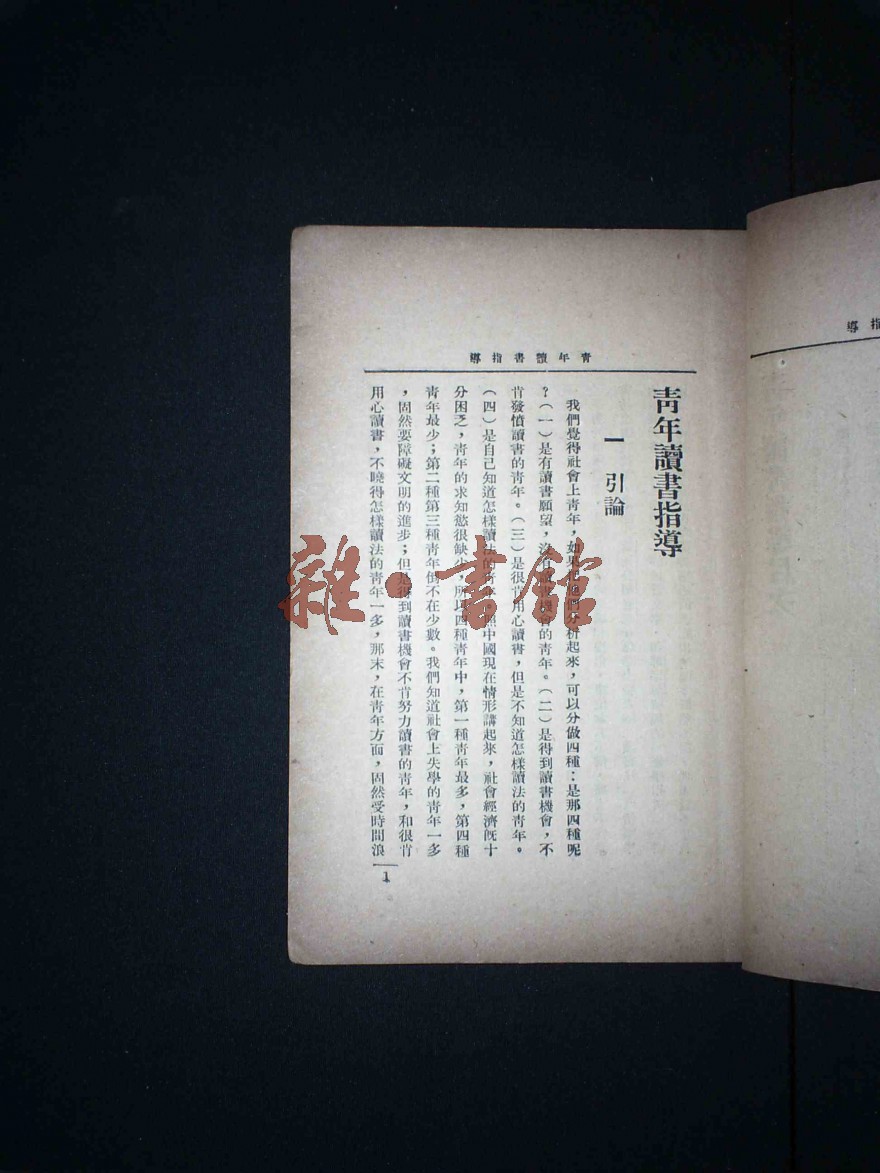 青年讀書指導
青年讀書指導
一 引論
我們覺得社會上青年，如果把他們分析起來，可以分做四種：是那四種呢
？（一）是有讀書願望，沒有讀書機會的青年。（二）是得到讀書機會，不
肯發憤讀書的青年。（三）是很肯用心讀書，但是不知道怎樣讀法的青年。
（四）是自己知道怎樣讀法的青年。照中國現在情形講起來，社會經濟旣十
分困乏，青年的求知慾很缺少，所以四種青年中，第一種青年最多，第四種
青年最少；第二種第三種青年倒不在少數。我們知道社會上失學的青年一多
，固然要障礙文明的進步；但是得到讀書機會不肯努力讀書的青年，和很肯
用心讀書，不曉得怎樣讀法的青年一多，那末，在青年方面，固然受時間浪
1
指導
雜·書館